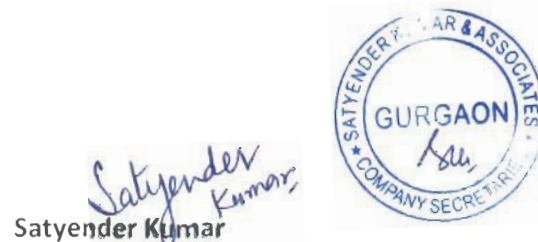 SATYENDER KUMAR & ASSOCIATES
GURGAON
★ COMPANY SECRETARIES ★
Satyender
Kumar
Satyender Kumar